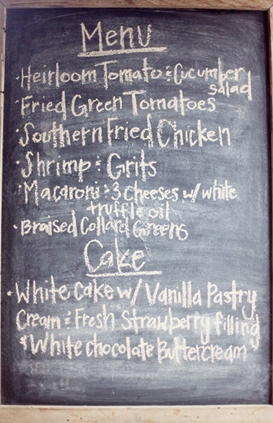 Menu
·Heirloom Tomato & Cucumber
salad
·Fried Green Tomatoes
·Southern Fried Chicken
·Shrimp & Grits
·Macaroni & 3 Cheeses w/ white
truffle oil
·Braised Collard Greens
Cake
·White Cake w/ Vanilla Pastry
Cream & Fresh Strawberry filling
*White chocolate Buttercream